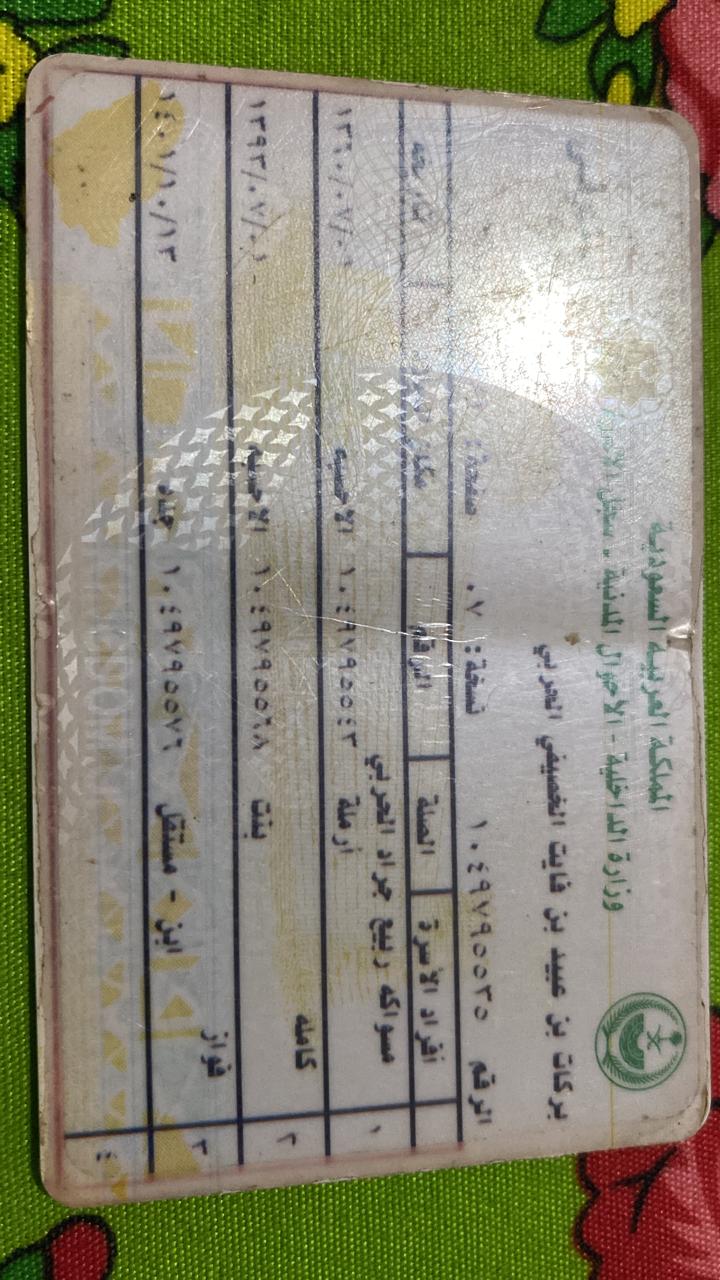 المملكة العربية السعودية
وزارة الداخلية - الأحوال المدنية - سجل الأسرة
بركات بن عبيد بن فايت الخصيفي الحربي
الرقم ١٠٤٩٧٩٥٥٣٥ نسخة: ٠٧ صفحة:
أفراد الأسرة الصلة الرقم مكان
١ مسواكه ربيع جراد الحربي
أرملة ١٠٤٩٧٩٥٥٤٣ الاحسبه ١٣٦٠/٠٧/٠١
٢ كامله
بنت ١٠٤٩٧٩٥٥٦٨ الاحسبه ١٣٩٣/٠٧/٠١
٣ فواز
ابن - مستقل ١٠٤٩٧٩٥٥٧٦ جده ١٤٠١/١٠/١٣
٤